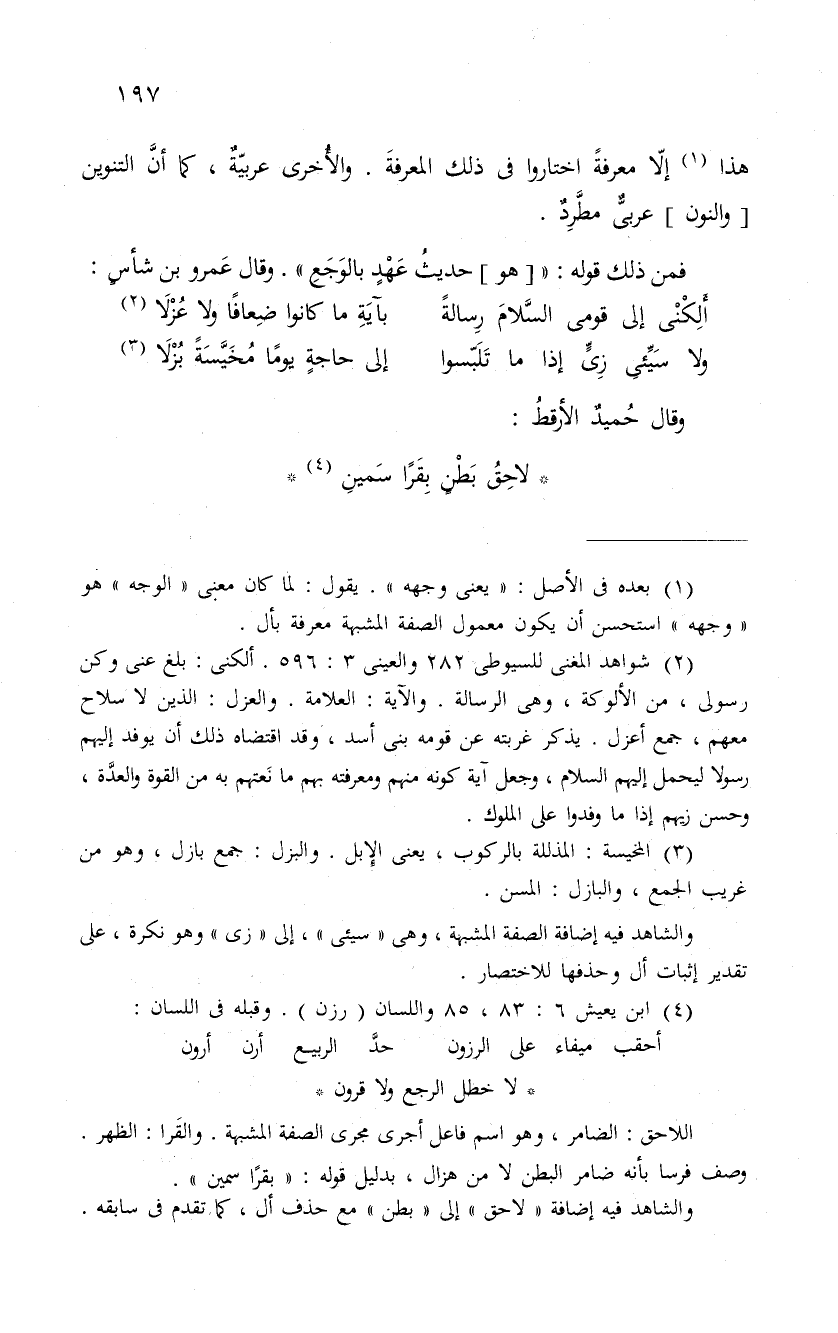 ١٩٧
هذا (١) إلّا معرفةً اختاروا فى ذلك المعرفةَ . والأُخرى عربيّةٌ ، كما أنَّ التنوين
[ والنون ] عربىٌّ مطَّرِدٌ .
فمن ذلك قوله : « [ هو ] حديثُ عَهْدٍ بالوَجَعِ » . وقال عَمرو بن شأسٍ :
أَلِكْنْى إلى قومى السَّلامَ رِسالةً بآيَةِ ما كانوا ضِعافًا ولا عُزْلَا (٢)
ولا سَيِّئىِ زِىٍّ إذا ما تَلَبّسوا إلى حاجةٍ يومًا مُخَيَّسَةً بُزْلَا (٣)
وقال حُميدٌ الأرقطُ :
* لاحِقُ بَطْنٍ بِقَرًا سَمينِ (٤) *
(١) بعده فى الأصل : « يعنى وجهه » . يقول : لما كان معنى « الوجه » هو
« وجهه » استحسن أن يكون معمول الصفة المشبهة معرفة بأل .
(٢) شواهد المغنى للسيوطى ٢٨٢ والعينى ٣ : ٥٩٦ . ألكنى : بلغ عنى وكن
رسولى ، من الألوكة ، وهى الرسالة . والآية : العلامة . والعزل : الذين لا سلاح
معهم ، جمع أعزل . يذكر غربته عن قومه بنى أسد ، وقد اقتضاه ذلك أن يوفد إليهم
رسولا ليحمل إليهم السلام ، وجعل آية كونه منهم ومعرفته بهم ما نَعتهم به من القوة والعدَّة ،
وحسن زيهم إذا ما وفدوا على الملوك .
(٣) المخيسة : المذللة بالركوب ، يعنى الإبل . والبزل : جمع بازل ، وهو من
غريب الجمع ، والبازل : المسن .
والشاهد فيه إضافة الصفة المشبهة ، وهى « سيئى » ، إلى « زى » وهو نكرة ، على
تقدير إثبات أل وحذفها للاختصار .
(٤) ابن يعيش ٦ : ٨٣ ، ٨٥ واللسان ( رزن ) . وقبله فى اللسان :
أحقب ميفاء على الرزون حدَّ الربيع أرن أرون
* لا خطل الرجع ولا قرون *
اللاحق : الضامر ، وهو اسم فاعل أجرى مجرى الصفة المشبهة . والقَرا : الظهر .
وصف فرسا بأنه ضامر البطن لا من هزال ، بدليل قوله : « بقرًا سمين » .
والشاهد فيه إضافة « لاحق » إلى « بطن » مع حذف أل ، كما تقدم فى سابقه .